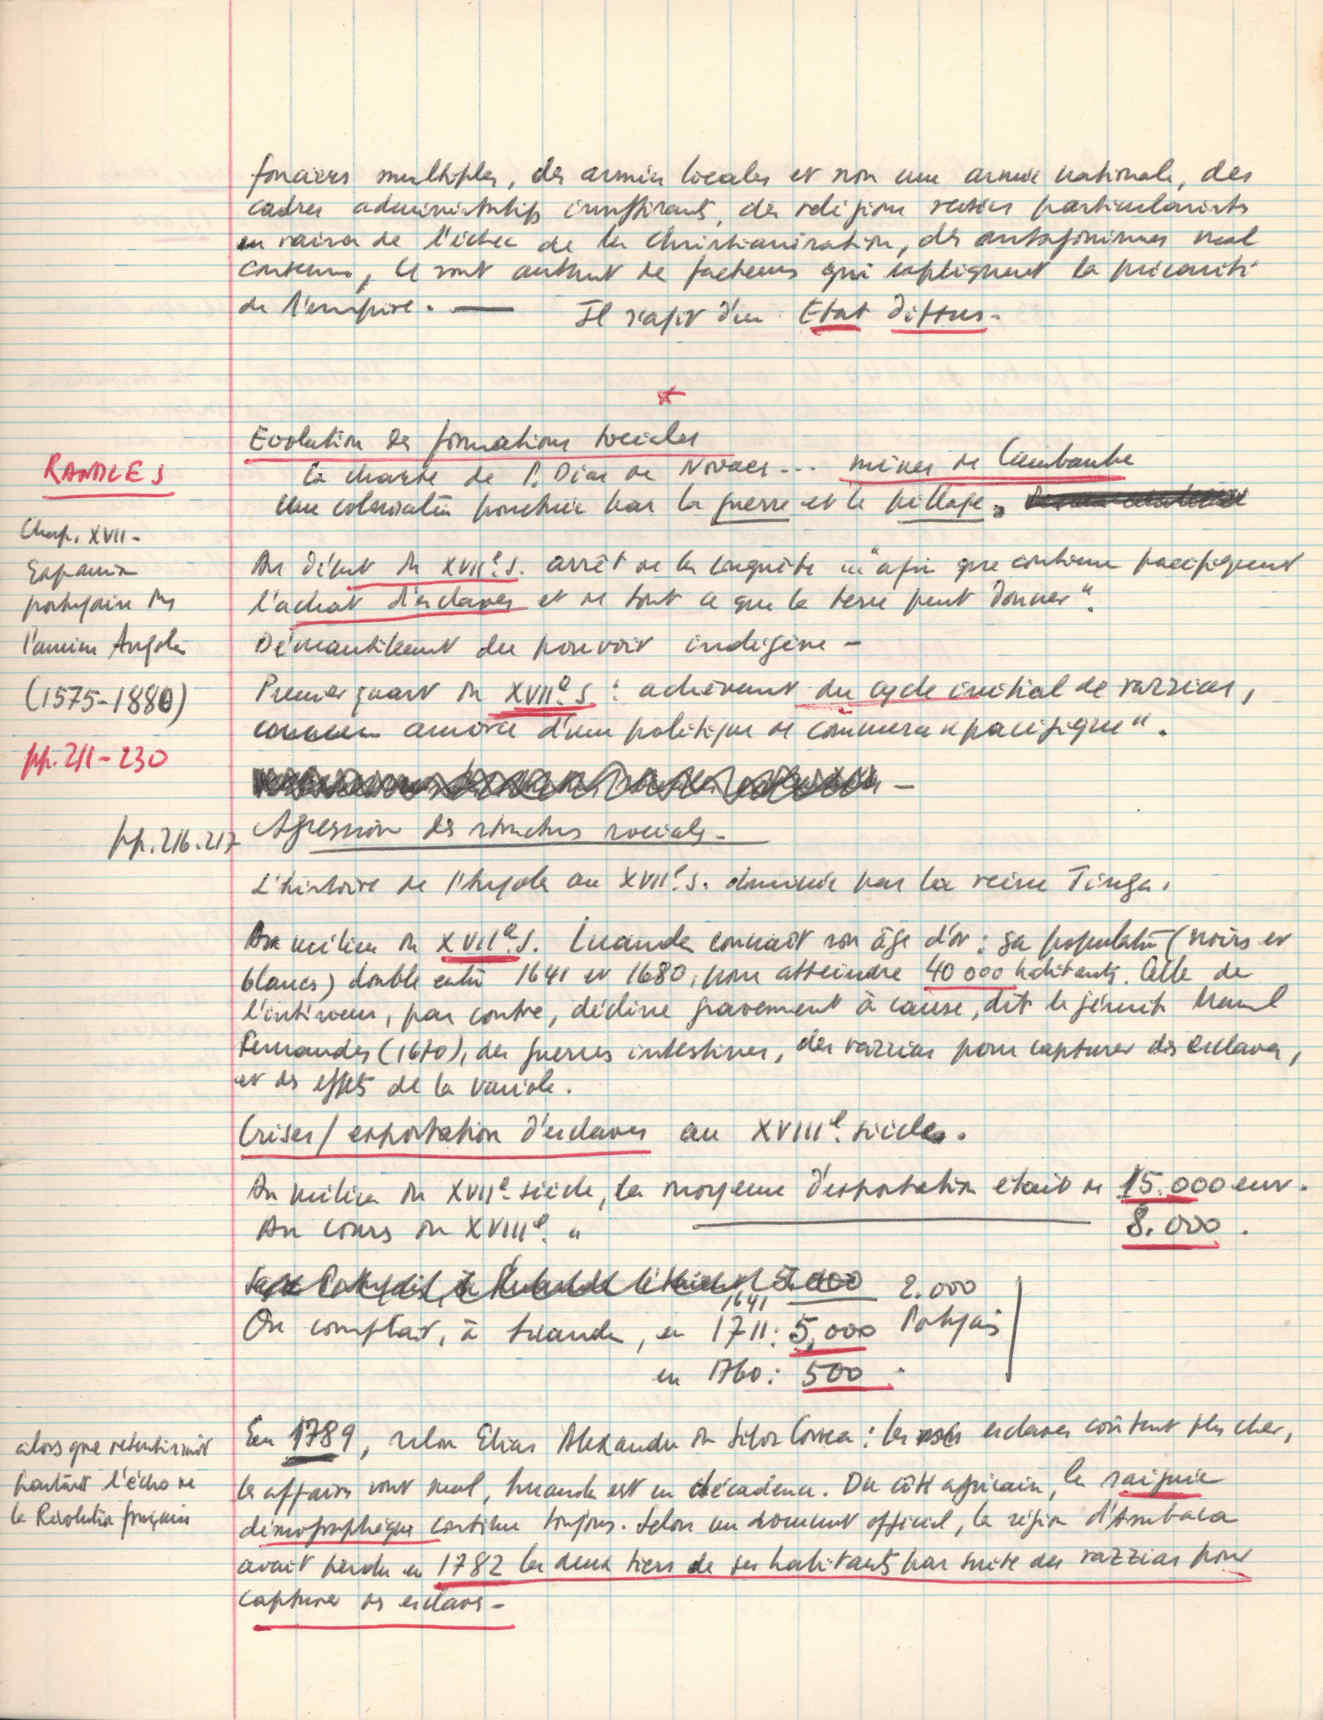 fonciers multiples, des armées locales et non une armée nationale, des
cadres administratifs insuffisants, des religions restées particularistes
en raison de l'échec de la christianisation, des antagonismes mal
contenus, ce sont autant de facteurs qui expliquent la précarité
de l'empire. — Il s'agit d'un Etat diffus.
*
Evolution des formations sociales
RANDLES
La charte de P. Dias de Novaes --- mines de Cambambe
Une colonisation par la guerre et le pillage.
Chap. XVII -
Expansion
portugaise ds
l'ancien Angola
(1575-1880)
pp. 211-230
Au début du XVIIe. s. arrêt de la conquête "afin que continue pacifiquement
l'achat d'esclaves et de tout ce que la terre peut donner".
Démantèlement du pouvoir indigène -
Premier quart du XVIIe s : achèvement du cycle initial de razzias,
amorce d'une politique de commerce "pacifique".
pp. 216.217
Agression des structures sociales -
L'histoire de l'Angola au XVIIe. s. dominée par la reine Jinga.
Au milieu du XVIIe. s. Luanda connaît son âge d'or : sa population (noirs et
blancs) double entre 1641 et 1680, pour atteindre 40 000 habitants. Celle de
l'intérieur, par contre, décline gravement à cause, dit le jésuite Manuel
Fernandes (1670), des guerres intestines, des razzias pour capturer des esclaves,
et des effets de la variole.
Crises / exportation d'esclaves au XVIIIe. siècle.
Au milieu du XVIIe. siècle, la moyenne d'exportation était de 15.000 env.
Au cours du XVIIIe. " 8.000.
On comptait, à Luanda, en 1641 1711 : 5,000 2.000 Portugais
en 1760 : 500 .
En 1789, selon Elias Alexandre da Silva Correa : les esclaves coûtent plus cher,
alors que retentissait
pourtant l'écho de
la Révolution française
les affaires vont mal, Luanda est en décadence. Du côté africain, la saignée
démographique continue toujours. Selon un document officiel, la région d'Ambaca
avait perdu en 1782 les deux tiers de ses habitants par suite des razzias pour
capturer des esclaves -